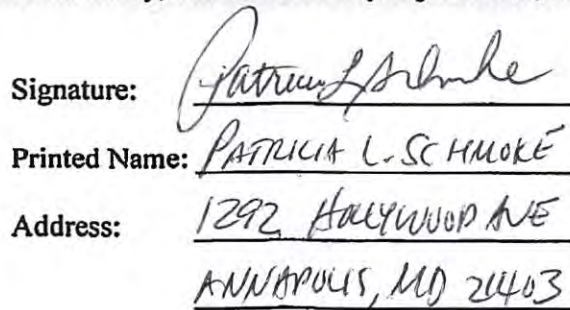 Signature: Patricia L Schmoke
Printed Name: PATRICIA L. SCHMOKE
Address: 1292 HOLLYWOOD AVE
ANNAPOLIS, MD 21403